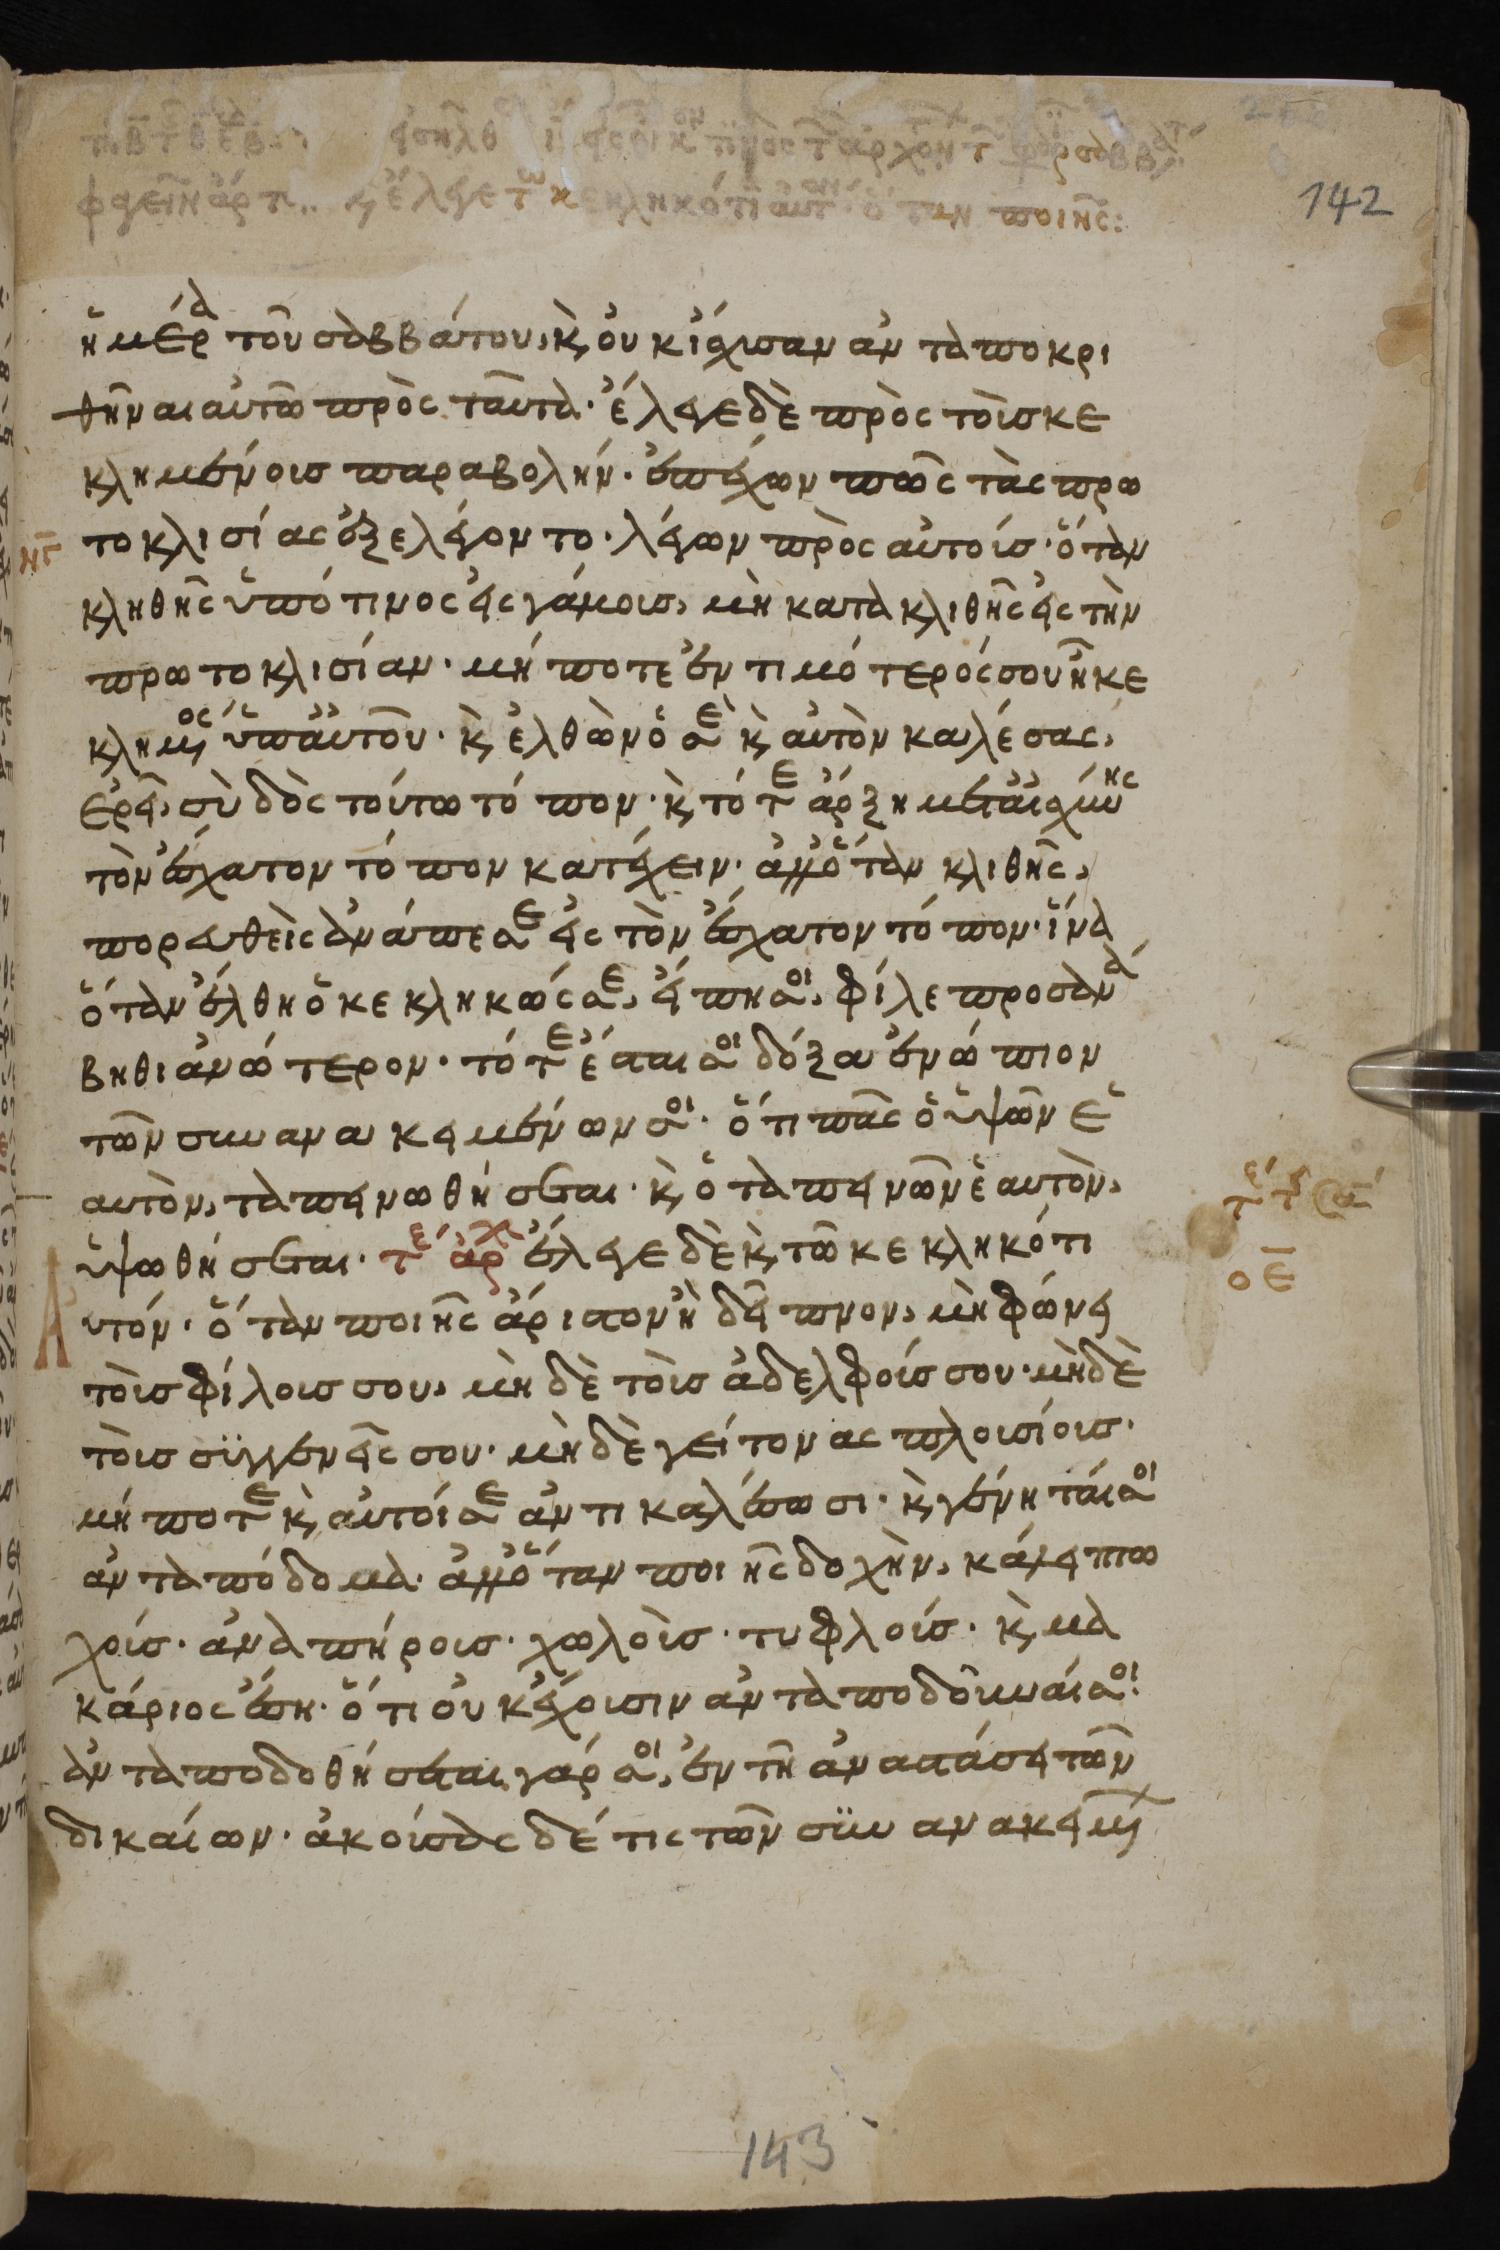 142
ἡμέρα τοῦ σαββάτου, κ, οὐκ ἴσχυσαν ἀνταποκρι
θῆναι αὐτῶ πρὸς ταῦτα· ἔλεγε δὲ πρὸς τοὺς κε
κλημένους παραβολήν· ἐπέχων πῶς τὰς πρω
τοκλισίας ἐξελέγοντο· λέγων πρὸς αὐτούς· ὅταν
κληθῆς ὑπό τινος εἰς γάμους, μὴ κατακλιθῆς εἰς τὴν
πρωτοκλισίαν· μήποτε ἐντιμότερός σου ἦ κε
κλημένος ὑπ' αὐτοῦ· κ, ἐλθὼν ὁ σὲ κ, αὐτὸν καλέσας,
ἐρεῖ, σὺ δὸς τούτω τόπον· κ, τότε ἄρξη μετ' αἰσχύνης
τὸν ἔσχατον τόπον κατέχειν· ἀλλ' ὅταν κληθῆς,
πορευθεὶς ἀνάπεσε εἰς τὸν ἔσχατον τόπον· ἵνα
ὅταν ἔλθη ὁ κεκληκώς σε, εἴπη σοι, φίλε προσανά
βηθι ἀνώτερον· τότε ἔσται σοι δόξα ἐνώπιον
τῶν συνανακειμένων σοι· ὅτι πᾶς ὁ ὑψῶν ἑ
αυτὸν, ταπεινωθήσεται· κ, ὁ ταπεινῶν ἑαυτὸν,
ὑψωθήσεται· τέ ἀρχ ἔλεγε δὲ κ, τῶ κεκληκότι
αυτόν· ὅταν ποιῆς ἄριστον ἢ δεῖπνον, μὴ φώνει
τοὺς φίλους σου, μὴ δὲ τοὺς ἀδελφούς σου· μὴ δὲ
τοὺς συγγενεῖς σου· μὴ δὲ γείτονας πλουσίους·
μήποτε κ, αὐτοί σε ἀντικαλέσωσι· κ, γένηταί σοι
ἀνταπόδομα· ἀλλ' ὅταν ποιῆς δοχὴν, κάλει πτω
χούς· ἀναπήρους· χωλοὺς· τυφλούς· κ, μα
κάριος ἔση· ὅτι οὐκ ἔχουσιν ἀνταποδοῦναί σοι·
ἀνταποδοθήσεται γάρ σοι, ἐν τῆ ἀναστάσει τῶν
δικαίων· ἀκούσας δέ τις τῶν συνανακειμ
143